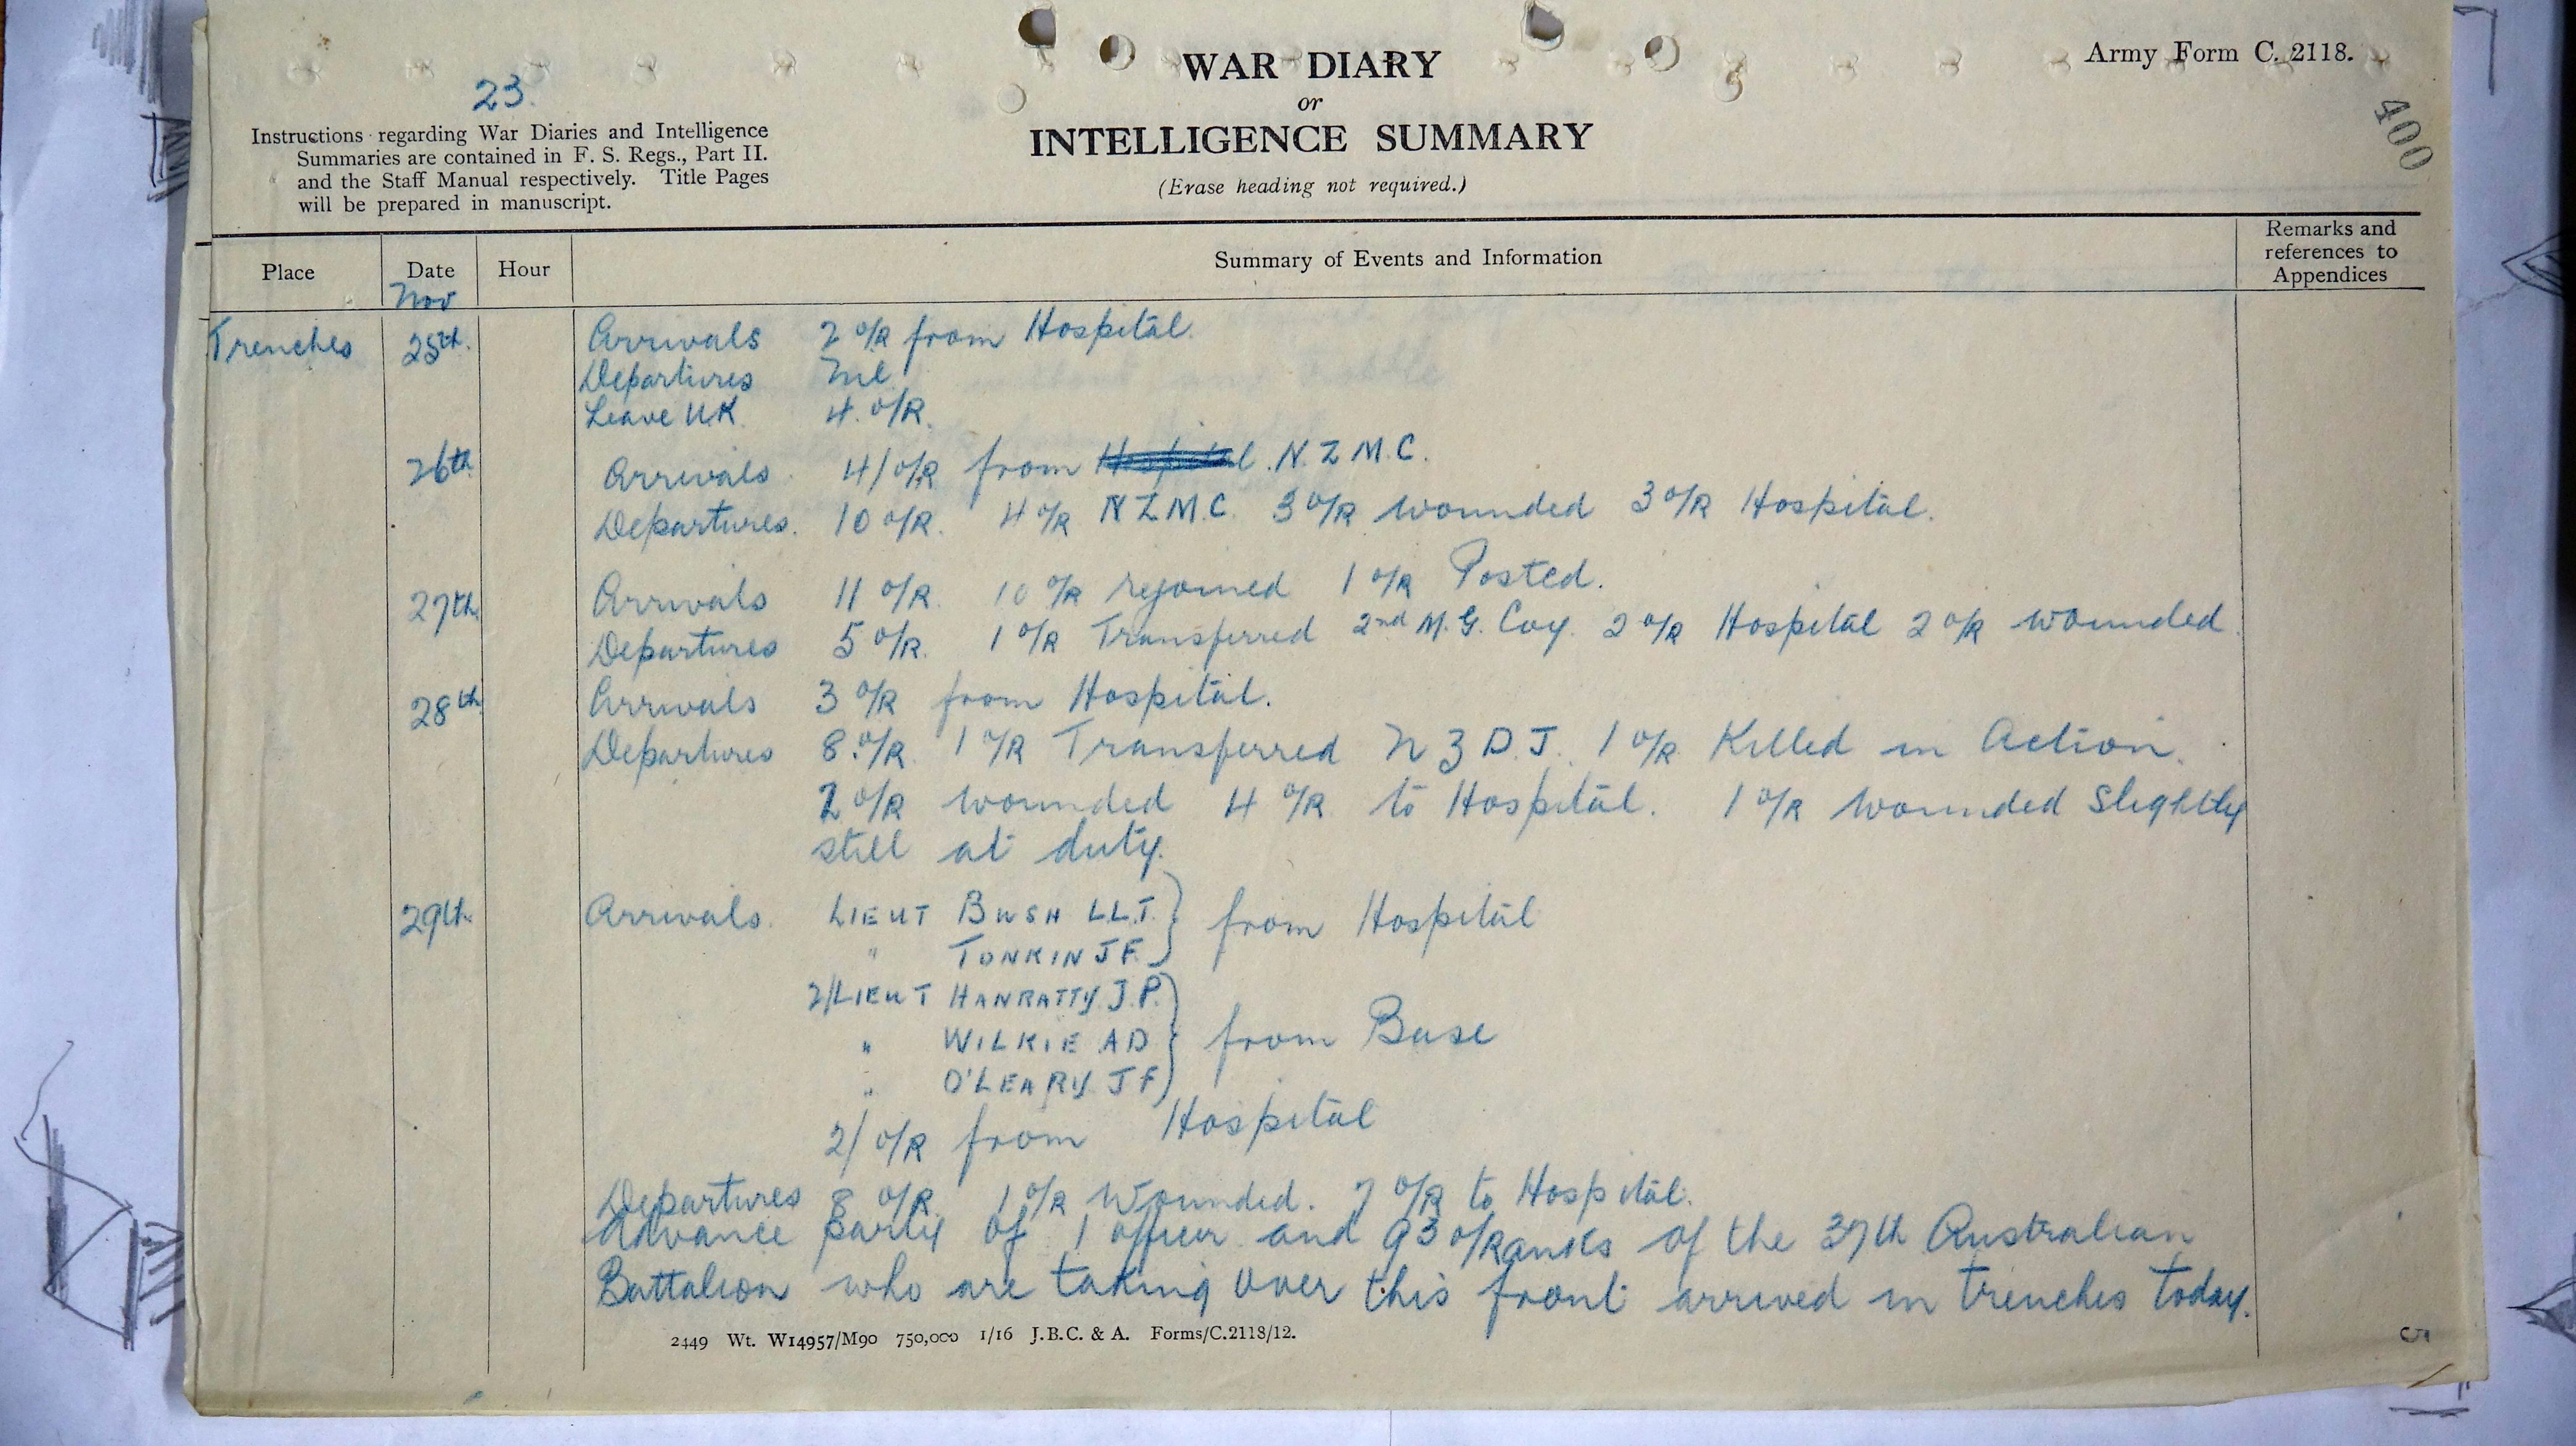 WAR DIARY
or
INTELLIGENCE SUMMARY
(Erase heading not required.)
Army Form C. 2118.
400
23.
Instructions regarding War Diaries and Intelligence
Summaries are contained in F. S. Regs., Part II.
and the Staff Manual respectively. Title Pages
will be prepared in manuscript.
Place Date Hour Summary of Events and Information Remarks and references to Appendices
Nov
Trenches 25th. Arrivals 2 o/R from Hospital.
Departures Nil
Leave U.K. 4. o/R.
26th Arrivals 4/ o/R from Hospital N. Z M. C.
Departures. 10 o/R. 4 o/R N Z M. C. 3 o/R wounded 3 o/R Hospital.
27th Arrivals 11 o/R. 10 o/R rejoined 1 o/R Posted.
Departures 5 o/R. 1 o/R Transferred 2nd M. G. Coy. 2 o/R Hospital 2 o/R wounded.
28th Arrivals 3 o/R from Hospital.
Departures 8. o/R. 1 o/R Transferred N Z D. J. 1 o/R Killed in Action.
2 o/R wounded 4 o/R to Hospital. 1 o/R wounded Slightly
still at duty.
29th Arrivals. LIEUT BUSH L.L.T. } from Hospital
" TONKIN J F.
2/LIEUT HANRATTY J. P.
" WILKIE A D } from Base
" O'LEARY J F
2/ o/R from Hospital
Departures 8 o/R. 1 o/R Wounded. 7 o/R to Hospital.
Advance party of 1 officer and 93 o/Ranks of the 37th Australian
Battalion who are taking over this front arrived in trenches today.
2449 Wt. W14957/M90 750,000 1/16 J.B.C. & A. Forms/C.2118/12.